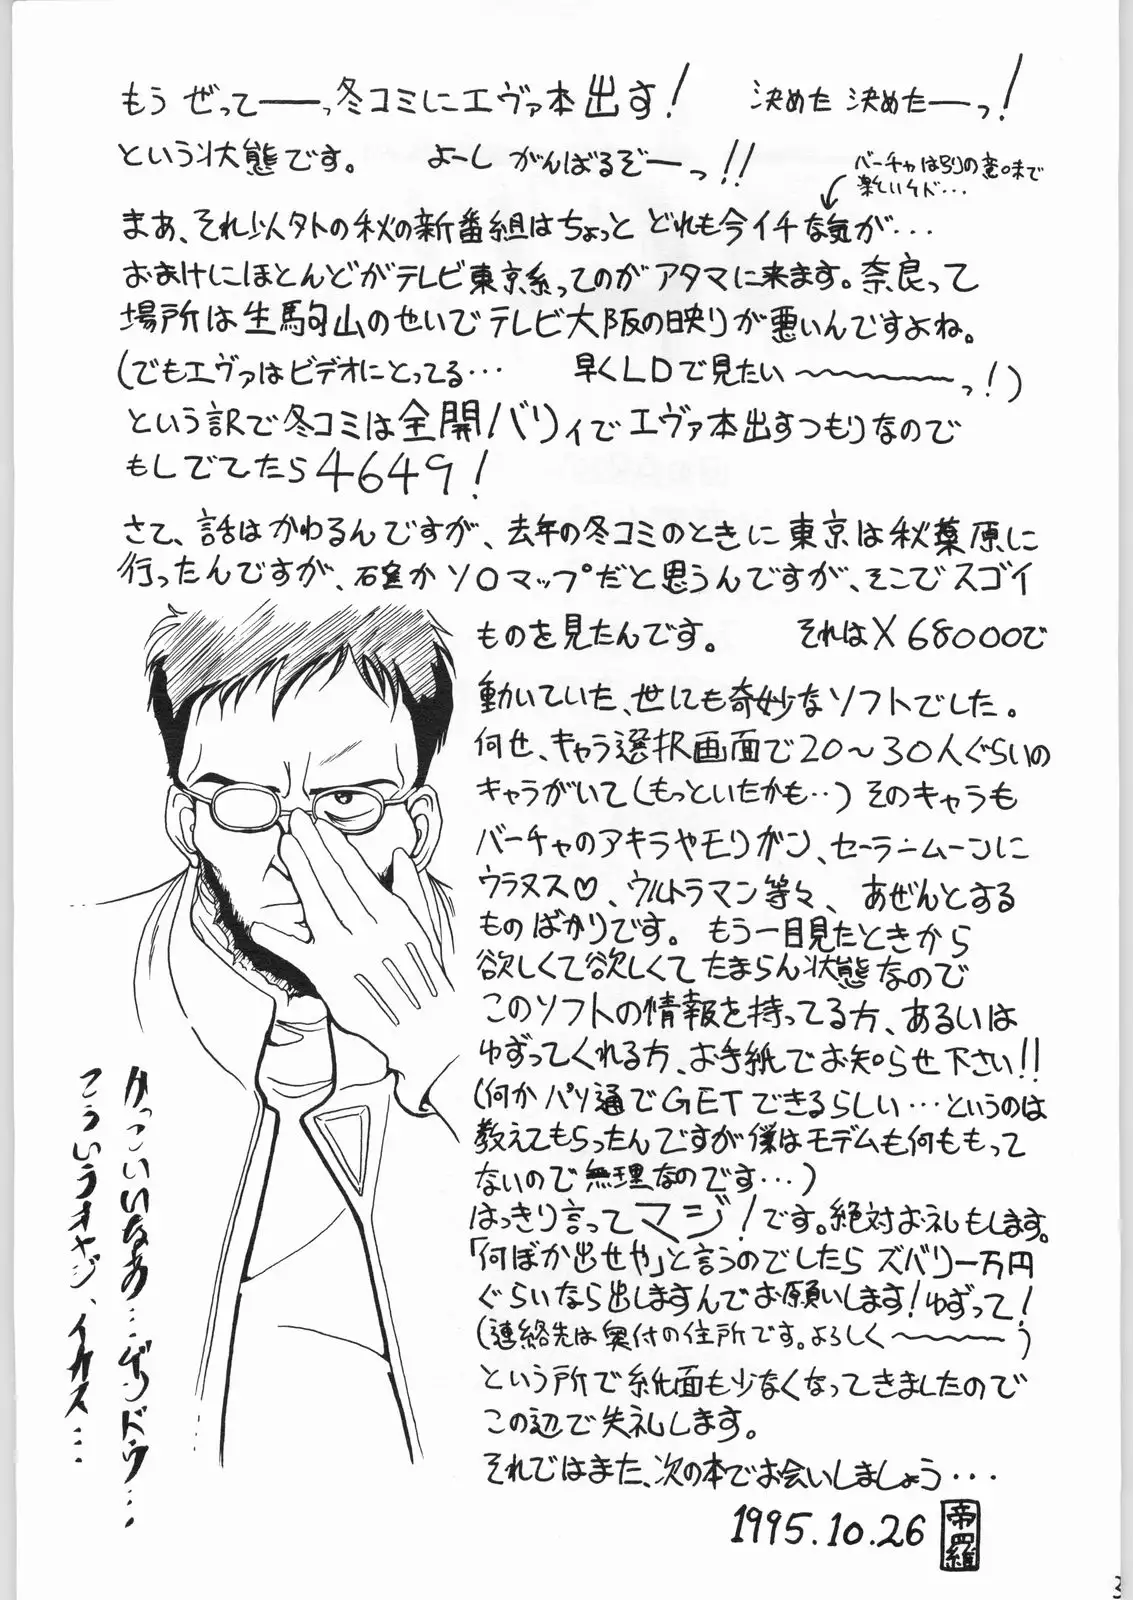 もう ぜってーーっ冬コミにエヴァ本出す! 決めた 決めたーっ!
という状態です。 よーし がんばるぞーっ!!
バーチャは別の意味で
楽しいケド・・・
まあ、それ以外の秋の新番組はちょっと どれも今イチな気が・・・
おまけにほとんどがテレビ東京系ってのが アタマに来ます。奈良って
場所は生駒山のせいでテレビ大阪の映りが悪いんですよね。
(でもエヴァはビデオにとってる・・・ 早くLDで見たい〜〜〜っ!)
という訳で冬コミは全開バリィでエヴァ本出すつもりなので
もしでてたら4649!
さて、話はかわるんですが、去年の冬コミのときに東京は秋葉原に
行ったんですが、確かソロマップだと思うんですが、そこでスゴイ
ものを見たんです。 それはX68000で
動いていた、世にも奇妙なソフトでした。
何せ、キャラ選択画面で20〜30人ぐらいの
キャラがいて(もっといたかも・・)そのキャラも
バーチャのアキラやモリガン、セーラームーンに
ウラヌス♡、ウルトラマン等々、 あぜんとする
ものばかりです。 もう一目見たときから
欲しくて欲しくてたまらん状態なので
このソフトの情報を持ってる方、あるいは
ゆずってくれる方、お手紙でお知らせ下さい!!
(何かパソ通でGETできるらしい・・・というのは
教えてもらったんですが僕はモデムも何ももって
ないので無理なのです・・・)
はっきり言ってマジ!です。絶対お礼もします。
「何ぼか出せや」と言うのでしたら ズバリ一万円
ぐらいなら出しますんでお願いします!ゆずって!
(連絡先は奥付の住所です。よろしく〜〜〜)
という所で紙面も少なくなってきましたので
この辺で失礼します。
それではまた、次の本でお会いしましょう・・・
1995.10.26 帝羅
かっこいいなあ・・・ゲンドウ・・・
こういうオヤジ、イカス・・・
3